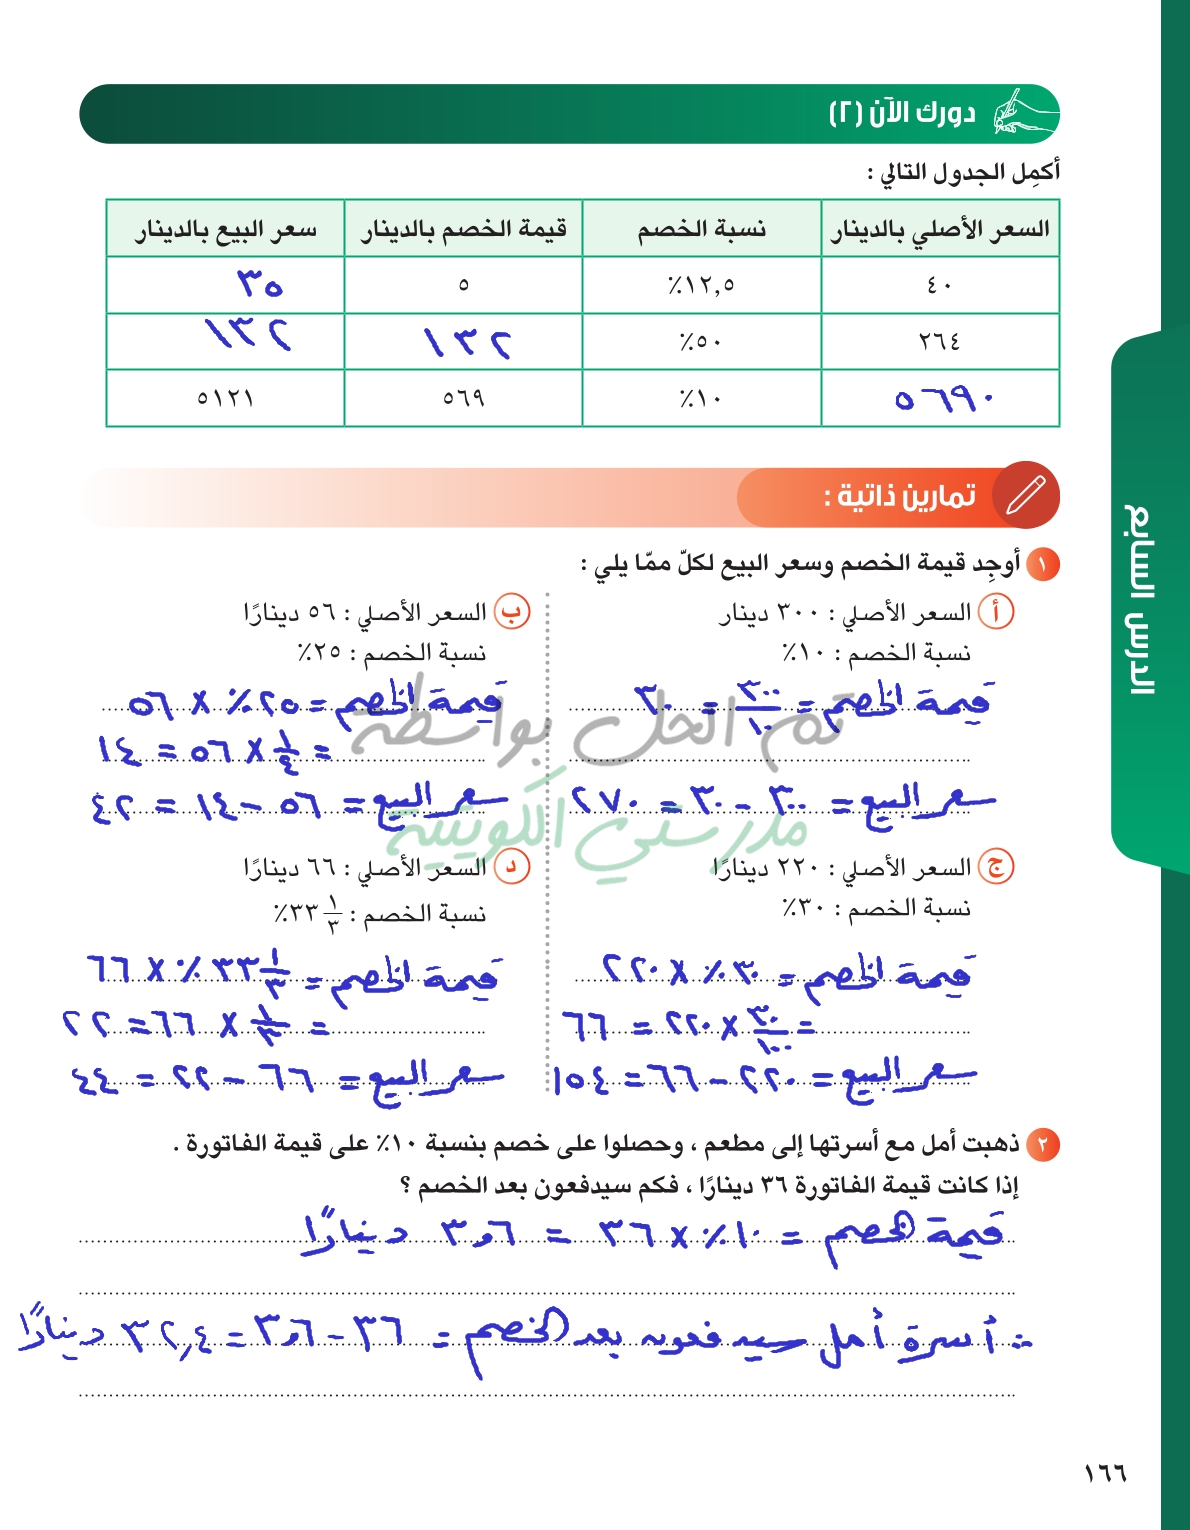 دورك الآن (٢)
أكمِل الجدول التالي :
السعر الأصلي بالدينار نسبة الخصم قيمة الخصم بالدينار سعر البيع بالدينار
٤٠ ١٢,٥٪ ٥ ٣٥
٢٦٤ ٥٠٪ ١٣٢ ١٣٢
٥٦٩٠ ١٠٪ ٥٦٩ ٥١٢١
تمارين ذاتية :
١ أوجِد قيمة الخصم وسعر البيع لكلّ ممّا يلي :
أ السعر الأصلي : ٣٠٠ دينار
نسبة الخصم : ١٠٪
قيمة الخصم = ٣٠٠/١٠ = ٣٠
سعر البيع = ٣٠٠ - ٣٠ = ٢٧٠
ب السعر الأصلي : ٥٦ دينارًا
نسبة الخصم : ٢٥٪
قيمة الخصم = ٢٥٪ × ٥٦
= ١/٤ × ٥٦ = ١٤
سعر البيع = ٥٦ - ١٤ = ٤٢
تم الحل بواسطة
مدرستي الكويتية
ج السعر الأصلي : ٢٢٠ دينارًا
نسبة الخصم : ٣٠٪
قيمة الخصم = ٣٠٪ × ٢٢٠
= ٣٠/١٠٠ × ٢٢٠ = ٦٦
سعر البيع = ٢٢٠ - ٦٦ = ١٥٤
د السعر الأصلي : ٦٦ دينارًا
نسبة الخصم : ٣٣ ١/٣٪
قيمة الخصم = ٣٣ ١/٣٪ × ٦٦
= ١/٣ × ٦٦ = ٢٢
سعر البيع = ٦٦ - ٢٢ = ٤٤
٢ ذهبت أمل مع أسرتها إلى مطعم ، وحصلوا على خصم بنسبة ١٠٪ على قيمة الفاتورة .
إذا كانت قيمة الفاتورة ٣٦ دينارًا ، فكم سيدفعون بعد الخصم ؟
قيمة الخصم = ١٠٪ × ٣٦ = ٣,٦ دينارًا
∴ أسرة أمل سيدفعون بعد الخصم = ٣٦ - ٣,٦ = ٣٢,٤ دينارًا
الدرس السابع
١٦٦